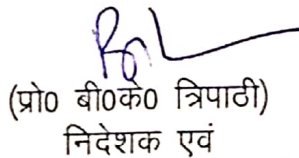 (प्रो0 बी0के0 त्रिपाठी)
निदेशक एवं